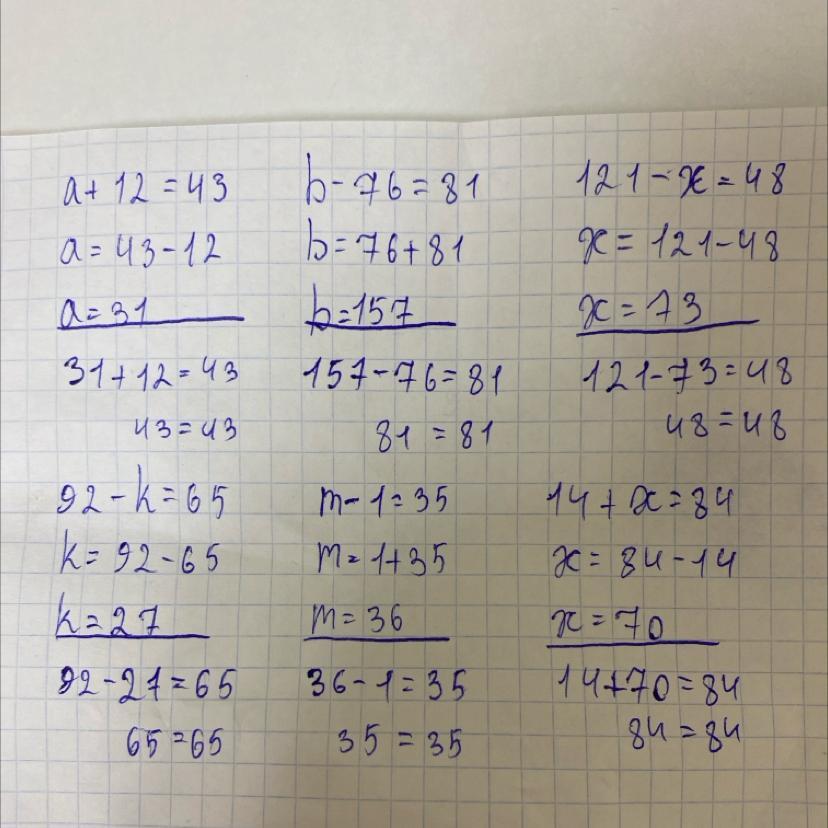 a + 12 = 43
a = 43 - 12
a = 31
31 + 12 = 43
43 = 43
b - 76 = 81
b = 76 + 81
b = 157
157 - 76 = 81
81 = 81
121 - x = 48
x = 121 - 48
x = 73
121 - 73 = 48
48 = 48
92 - k = 65
k = 92 - 65
k = 27
92 - 27 = 65
65 = 65
m - 1 = 35
m = 1 + 35
m = 36
36 - 1 = 35
35 = 35
14 + x = 84
x = 84 - 14
x = 70
14 + 70 = 84
84 = 84